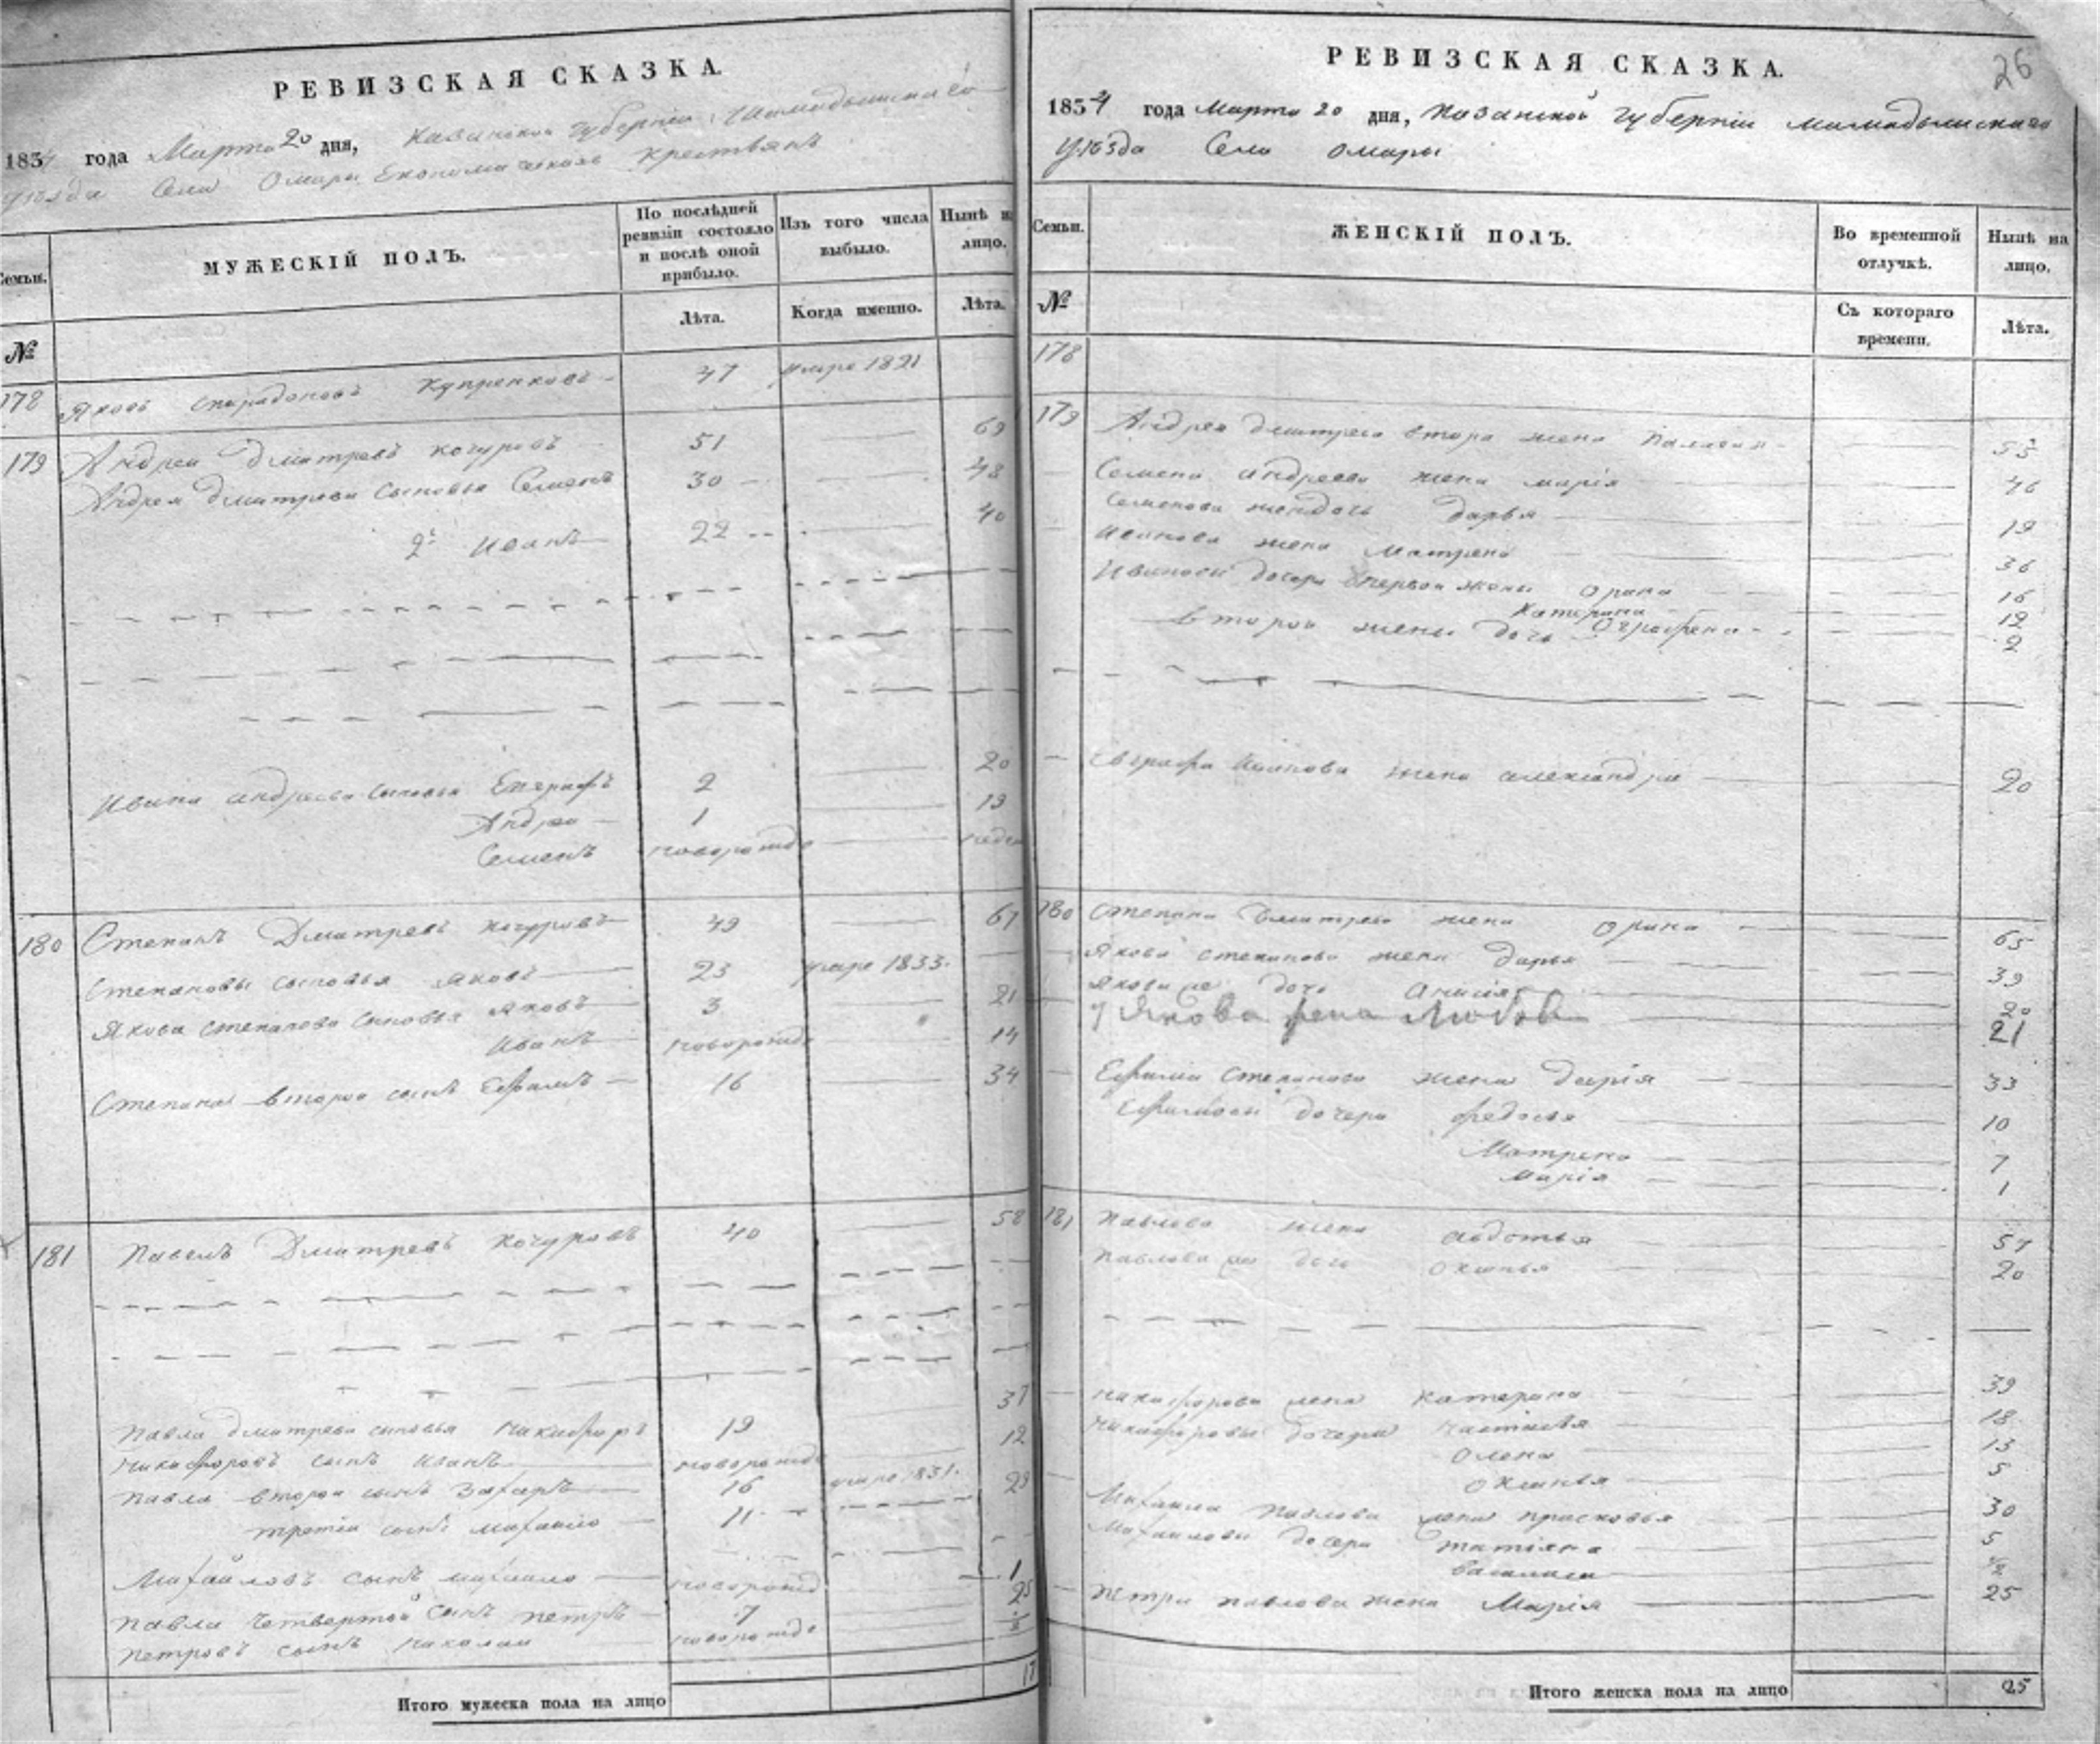 РЕВИЗСКАЯ СКАЗКА.
1834 года Марта 20 дня, Казанской Губерніи Мамадышскаго
уѣзда Села Омары Економическихъ крестьянъ
Семьи.
МУЖЕСКІЙ ПОЛЪ.
По послѣдней ревизіи состояло и послѣ оной прибыло.
Изъ того числа выбыло.
Нынѣ на лицо.
№
Лѣта.
Когда именно.
Лѣта.
178 Яковъ Спиридоновъ Купренковъ 47 умре 1821
179 Андрей Дмитревъ Кочуровъ 51 69
Андрея Дмитрева сыновья Семенъ 30 48
2й Иванъ 22 40
Ивана Андреева сыновья Евграфъ 2 20
Андрей 1 19
Семенъ новорожде
180 Степанъ Дмитревъ Кочуровъ 49 67
Степановы сыновья Яковъ 23 умре 1833.
Якова Степанова сыновья Яковъ 3 21
Иванъ новорожде 14
Степана второй сынъ Ефимъ 16 34
181 Павелъ Дмитревъ Кочуровъ 40 58
Павла Дмитрева сыновья Никифоръ 19 37
Никифоровъ сынъ Иванъ новорожде 12
Павла второй сынъ Захаръ 16 умре 1831.
третій сынъ Михайло 11 29
Михайловъ сынъ Михайло новорожд 1
Павла четвертой сынъ Петръ 7 25
Петровъ сынъ Николай новорожде
Итого мужеска пола на лицо 17
26
РЕВИЗСКАЯ СКАЗКА.
1834 года Марта 20 дня, Казанской Губерніи Мамадышскаго
уѣзда Села Омары
Семьи.
ЖЕНСКІЙ ПОЛЪ.
Во временной отлучкѣ.
Нынѣ на лицо.
№
Съ котораго времени.
Лѣта.
178
179 Андрея Дмитрева втора жена Палагия 55
Семена Андреева жена Марія 46
Семенова дочь Дарья 19
Иванова жена Матрена 36
Ивановы дочери спервой жены Орина 16
Катерина 12
второй жены дочь Огрофена 2
Евграфа Иванова жена Александра 20
180 Степана Дмитрева жена Орина 65
Якова Степанова жена Дарья 39
Якова же дочь Анисія 20
у Якова жена Любов 21
Ефима Степанова жена Дарія 33
Ефимовы дочери Федосья 10
Матрена 7
Марія 1
181 Павлова жена Авдотья 57
Павлова же дочь Оксинья 20
Никифорова жена Катерина 39
Никифоровы дочери Настасья 18
Олена 13
Оксинья 5
Михаила Павлова жена Прасковья 30
Михайловы дочери Татіяна 5
Василиса 1/2
Петра Павлова жена Марія 25
Итого женска пола на лицо 25